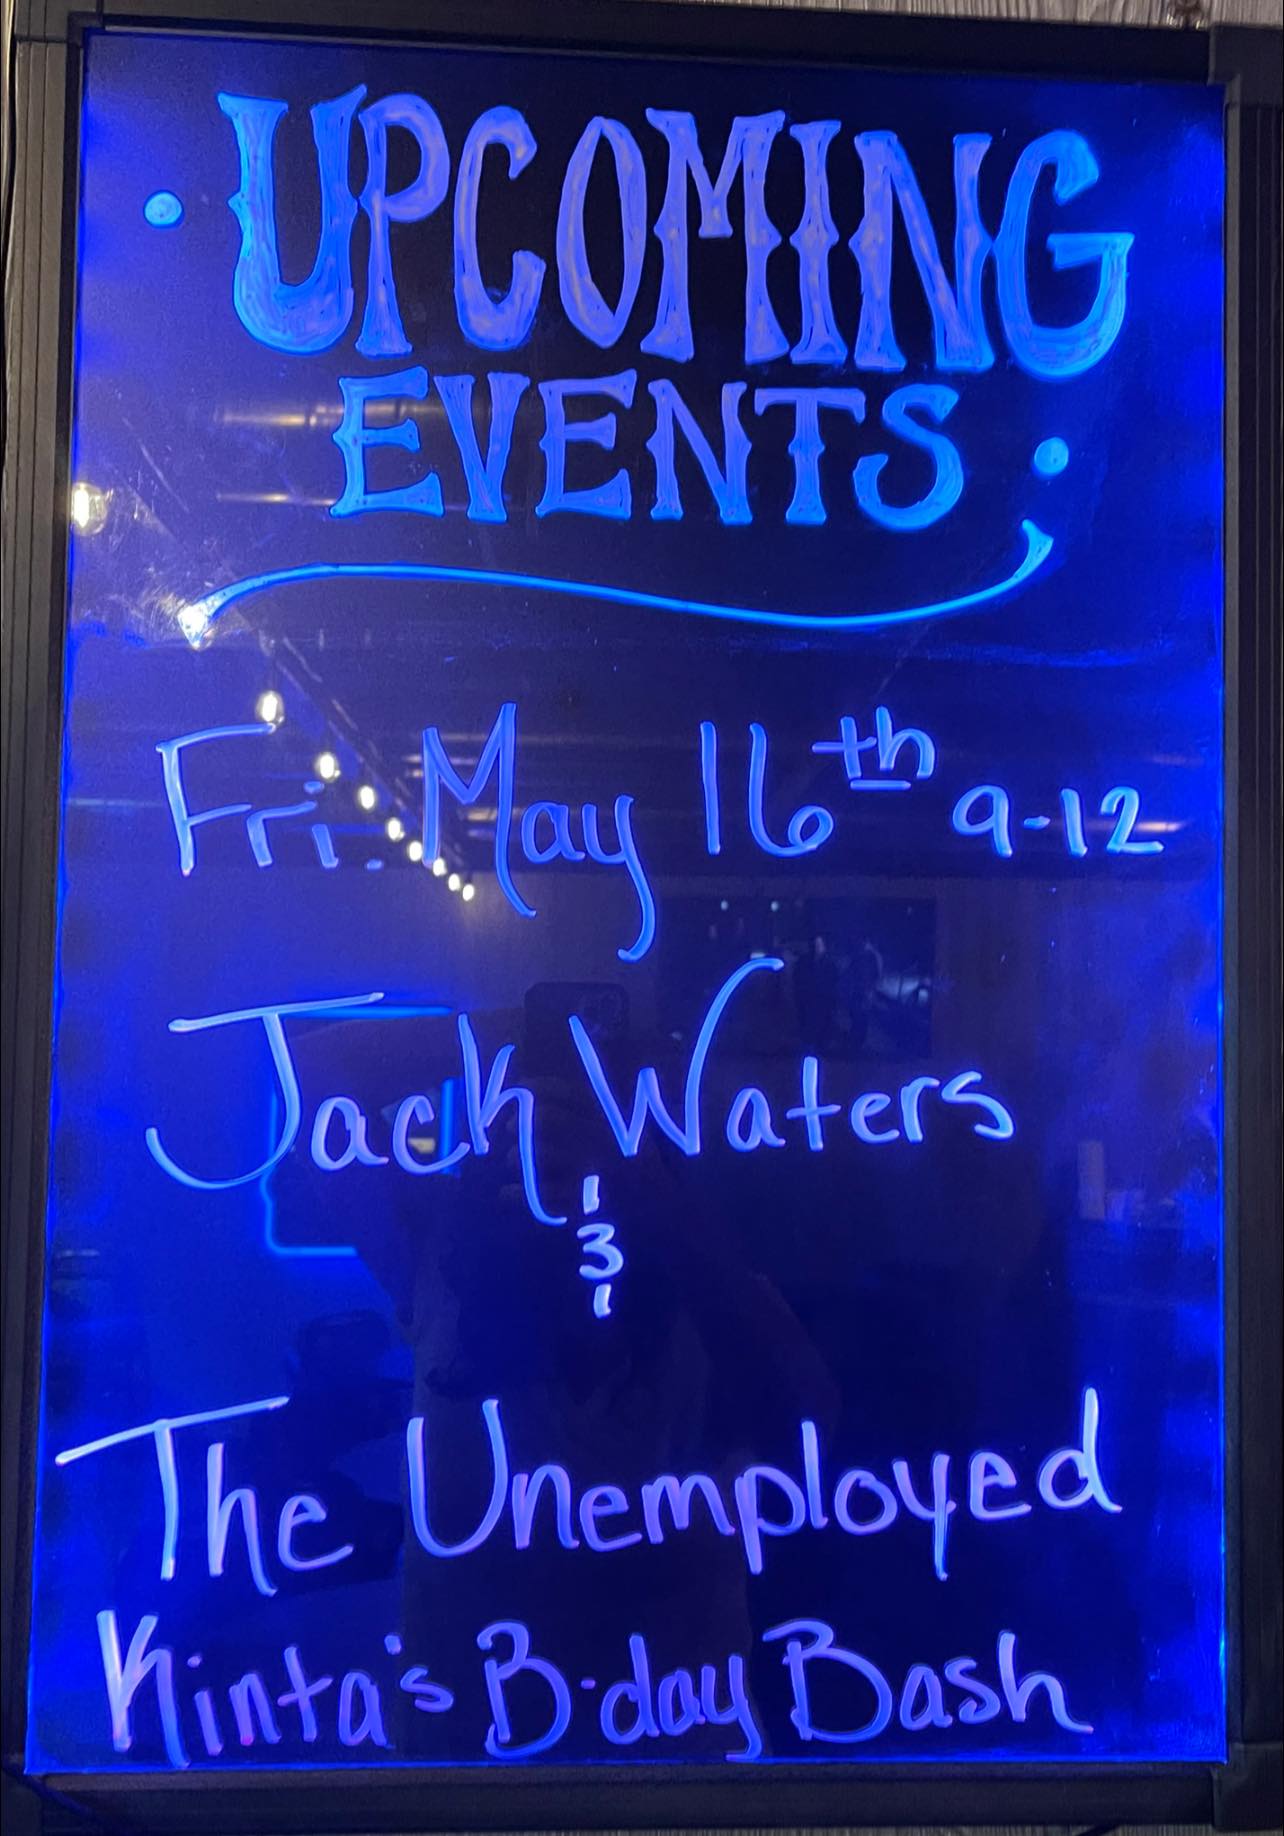 UPCOMING
EVENTS
Fri. May 16th 9-12
Jack Waters
&
The Unemployed
Kinta's B-day Bash